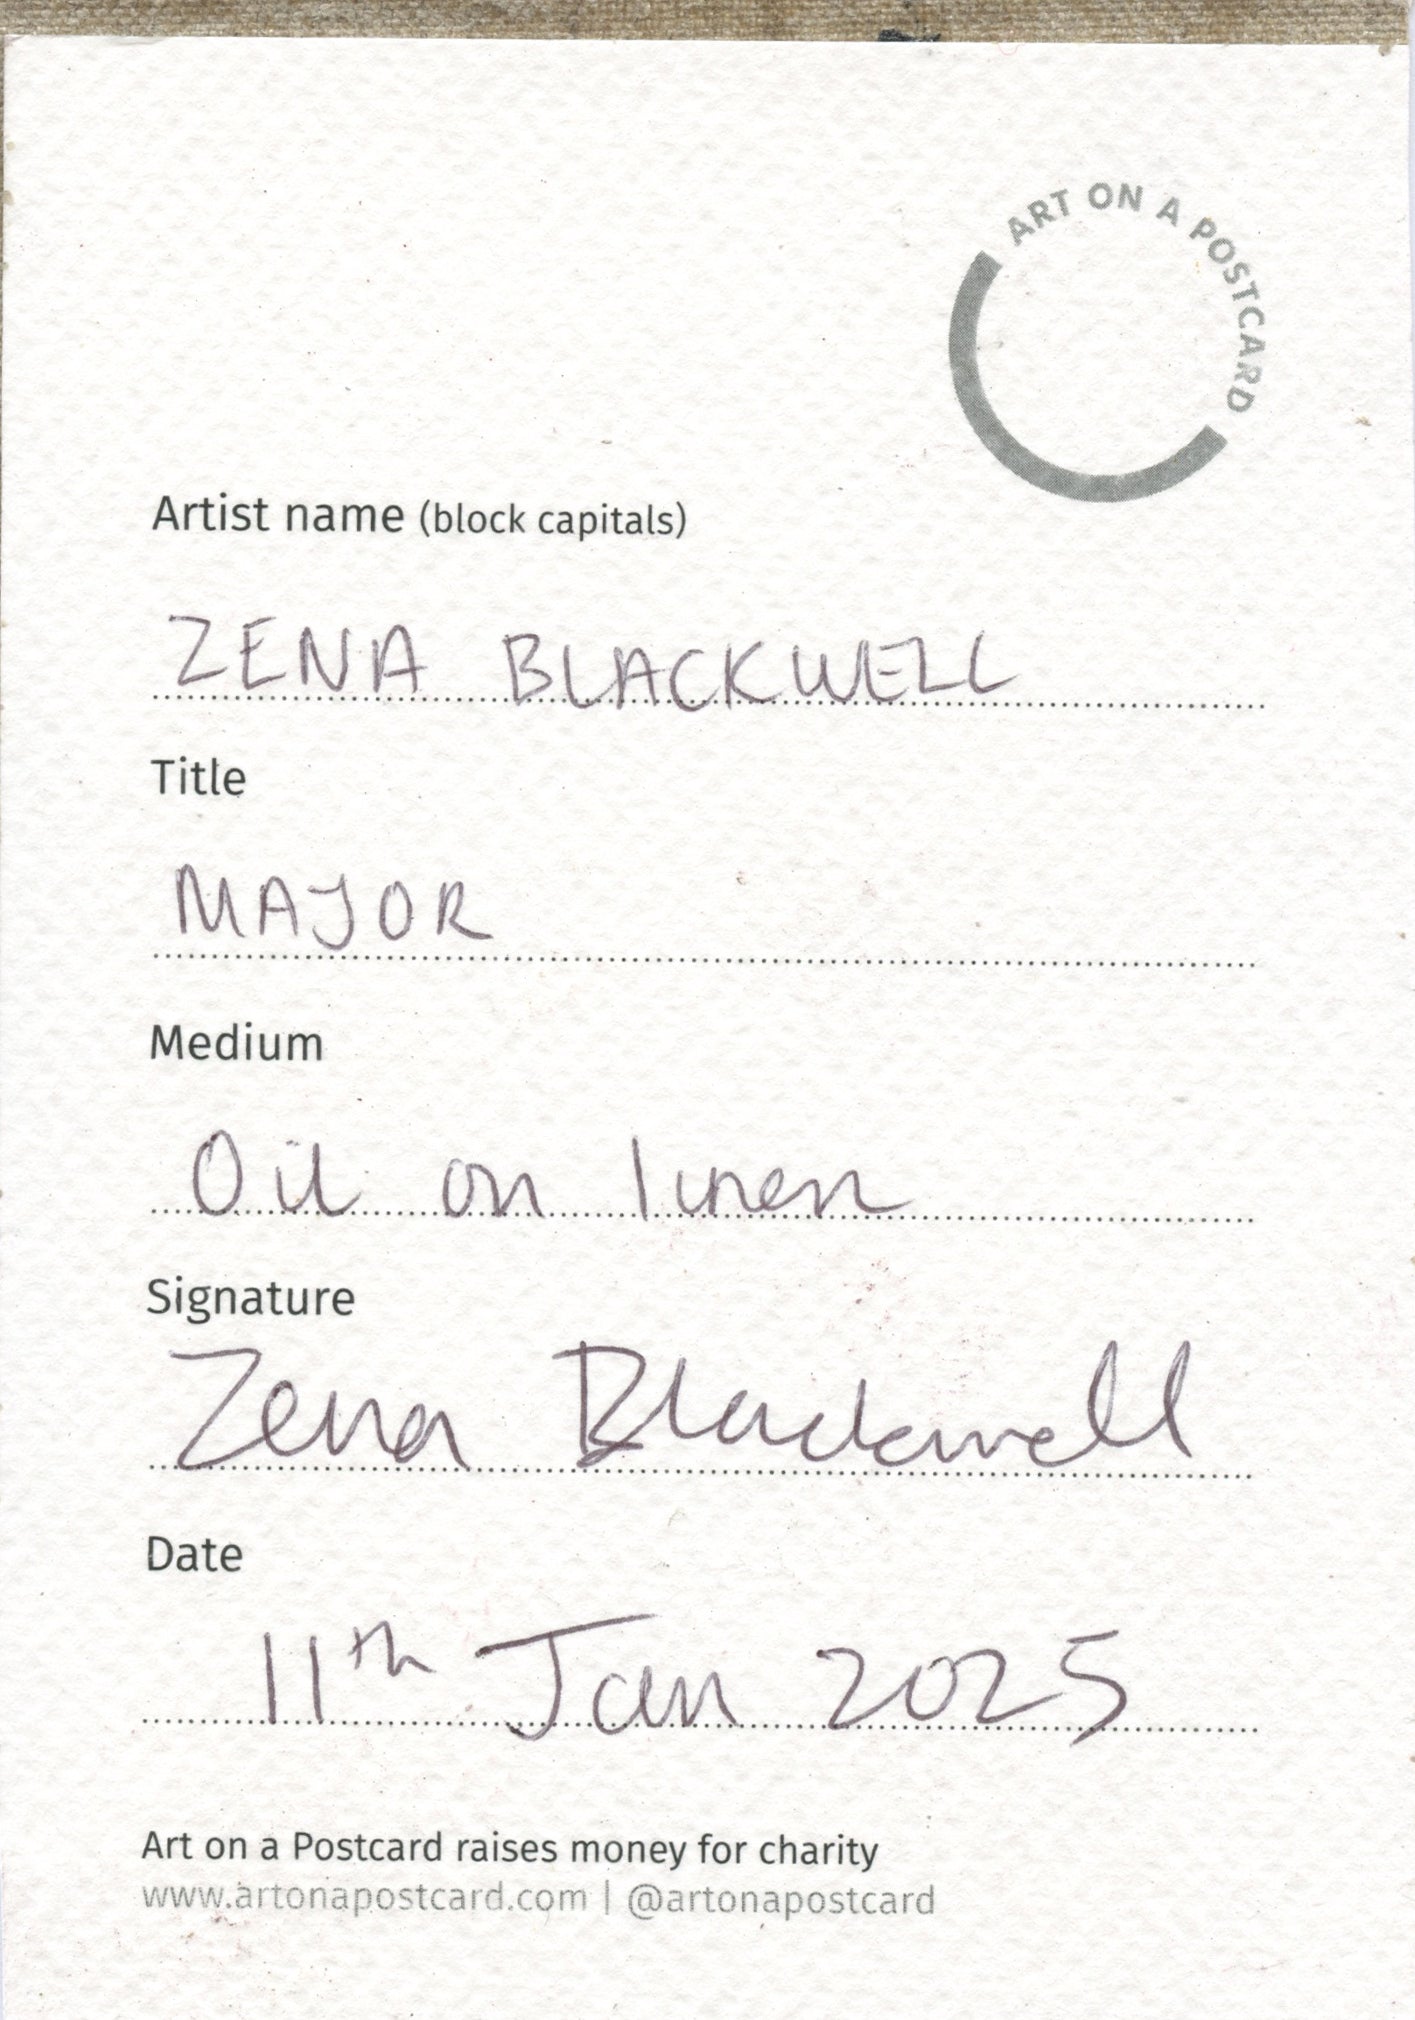 ART ON A POSTCARD
Artist name (block capitals)
ZENA BLACKWELL
Title
MAJOR
Medium
Oil on linen
Signature
Zena Blackwell
Date
11th Jan 2025
Art on a Postcard raises money for charity
www.artonapostcard.com | @artonapostcard